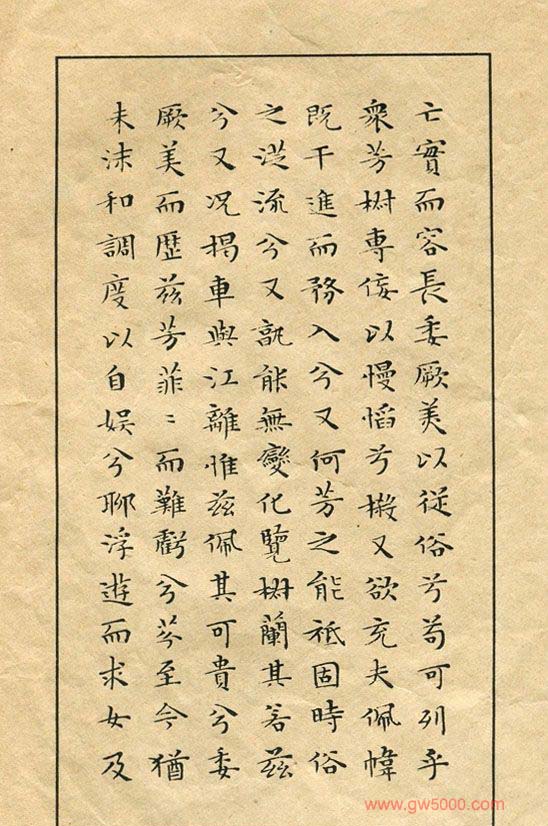 亡實而容長委厥美以從俗兮苟可列乎
衆芳椒專佞以慢慆兮樧又欲充夫佩幃
既干進而務入兮又何芳之能祗固時俗
之從流兮又孰能無變化覽椒蘭其若茲
兮又况揭車與江離惟茲佩其可貴兮委
厥美而歷茲芳菲〻而難虧兮芬至今猶
未沫和調度以自娛兮聊浮遊而求女及
www.gw5000.com